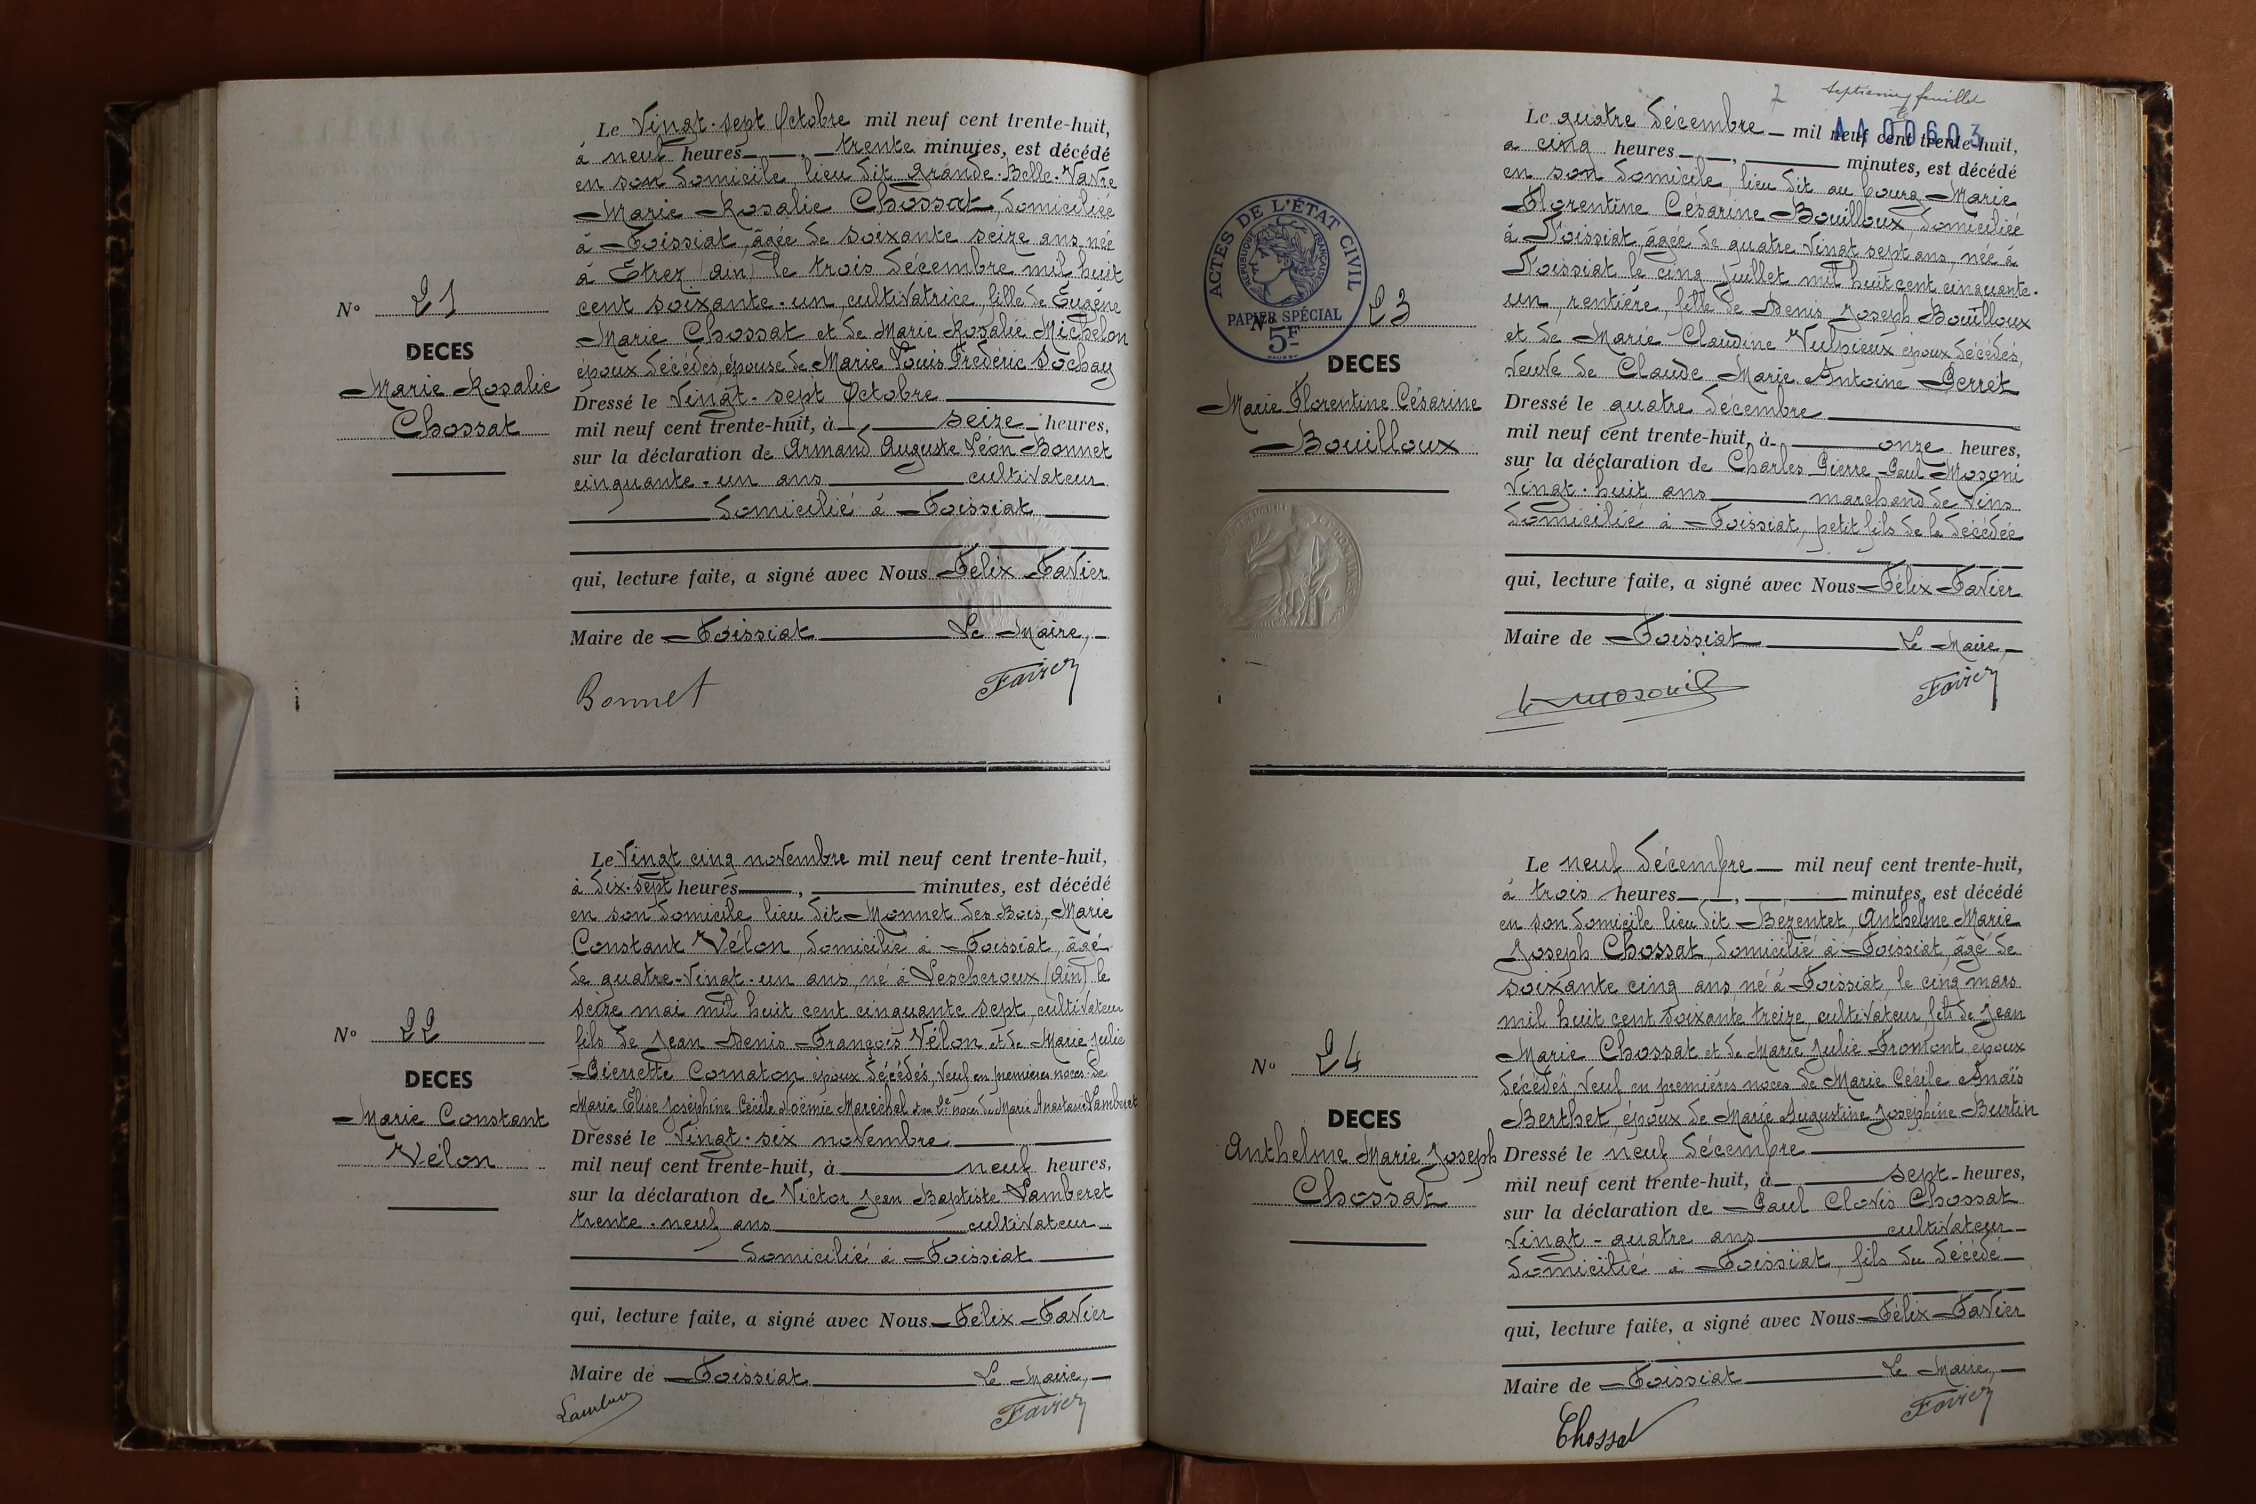 Le Vingt-sept Octobre mil neuf cent trente-huit,
à neuf heures , trente minutes, est décédé
en son domicile, lieu dit Grande-Belle-Vavre
Marie Rosalie Chossat, domiciliée
à Foissiat, âgée de soixante seize ans, née
à Étrez (Ain) le trois décembre mil huit
cent soixante-un, cultivatrice, fille de Eugène
Marie Chossat et de Marie Rosalie Michelon
époux décédés, épouse de Marie Louis Frédéric Sochay
N° 21
DECES
Marie Rosalie
Chossat
Dressé le Vingt-sept Octobre
mil neuf cent trente-huit, à seize heures,
sur la déclaration de Armand Auguste Léon Bonnet
cinquante-un ans cultivateur
domicilié à Foissiat
qui, lecture faite, a signé avec Nous Félix Favier
Maire de Foissiat Le Maire,
Bonnet Favier
Le Vingt cinq novembre mil neuf cent trente-huit,
à dix-sept heures , minutes, est décédé
en son domicile lieu dit Monnet des Bois, Marie
Constant Vélon, domicilié à Foissiat, âgé
de quatre-vingt-un ans, né à Lescheroux (Ain) le
seize mai mil huit cent cinquante sept, cultivateur
fils de Jean Denis François Vélon et de Marie Julie
Pierrette Cornaton époux décédés, veuf en premières noces de
Marie Élise Joséphine Cécile Noémie Maréchal et en 2e noces de Marie Anastasie Lamberet
N° 22
DECES
Marie Constant
Vélon
Dressé le Vingt-six novembre
mil neuf cent trente-huit, à neuf heures,
sur la déclaration de Victor Jean Baptiste Lamberet
trente-neuf ans cultivateur
domicilié à Foissiat
qui, lecture faite, a signé avec Nous Félix Favier
Maire de Foissiat Le Maire,
Favier
7 septième feuillet
1100603
Le quatre décembre mil neuf cent trente-huit,
à cinq heures , minutes, est décédé
en son domicile, lieu dit au bourg Marie
Florentine Césarine Bouilloux, domiciliée
à Foissiat, âgée de quatre vingt sept ans, née à
Foissiat le cinq juillet mil huit cent cinquante-
un, rentière, fille de Denis Joseph Bouilloux
et de Marie Claudine Vulpieux époux décédés,
veuve de Claude Marie Antoine Perret
ACTES DE L'ÉTAT CIVIL
RÉPUBLIQUE FRANÇAISE
PAPIER SPÉCIAL
5F
N° 23
DECES
Marie Florentine Césarine
Bouilloux
Dressé le quatre décembre
mil neuf cent trente-huit, à onze heures,
sur la déclaration de Charles Pierre Paul Mosoni
vingt-huit ans marchand de vins
domicilié à Foissiat, petit fils de la décédée
qui, lecture faite, a signé avec Nous Félix Favier
Maire de Foissiat Le Maire,
Favier
Le neuf décembre mil neuf cent trente-huit,
à trois heures , minutes, est décédé
en son domicile lieu dit Bézentet, Anthelme Marie
Joseph Chossat, domicilié à Foissiat, âgé de
soixante cinq ans, né à Foissiat, le cinq mars
mil huit cent soixante treize, cultivateur, fils de Jean
Marie Chossat et de Marie Julie Fromont, époux
décédés, veuf en premières noces de Marie Cécile Anaïs
Berthet, époux de Marie Augustine Joséphine Burtin
N° 24
DECES
Anthelme Marie Joseph
Chossat
Dressé le neuf décembre
mil neuf cent trente-huit, à sept heures,
sur la déclaration de Paul Clovis Chossat
vingt-quatre ans cultivateur
domicilié à Foissiat, fils du décédé
qui, lecture faite, a signé avec Nous Félix Favier
Maire de Foissiat Le Maire,
Chossat Favier